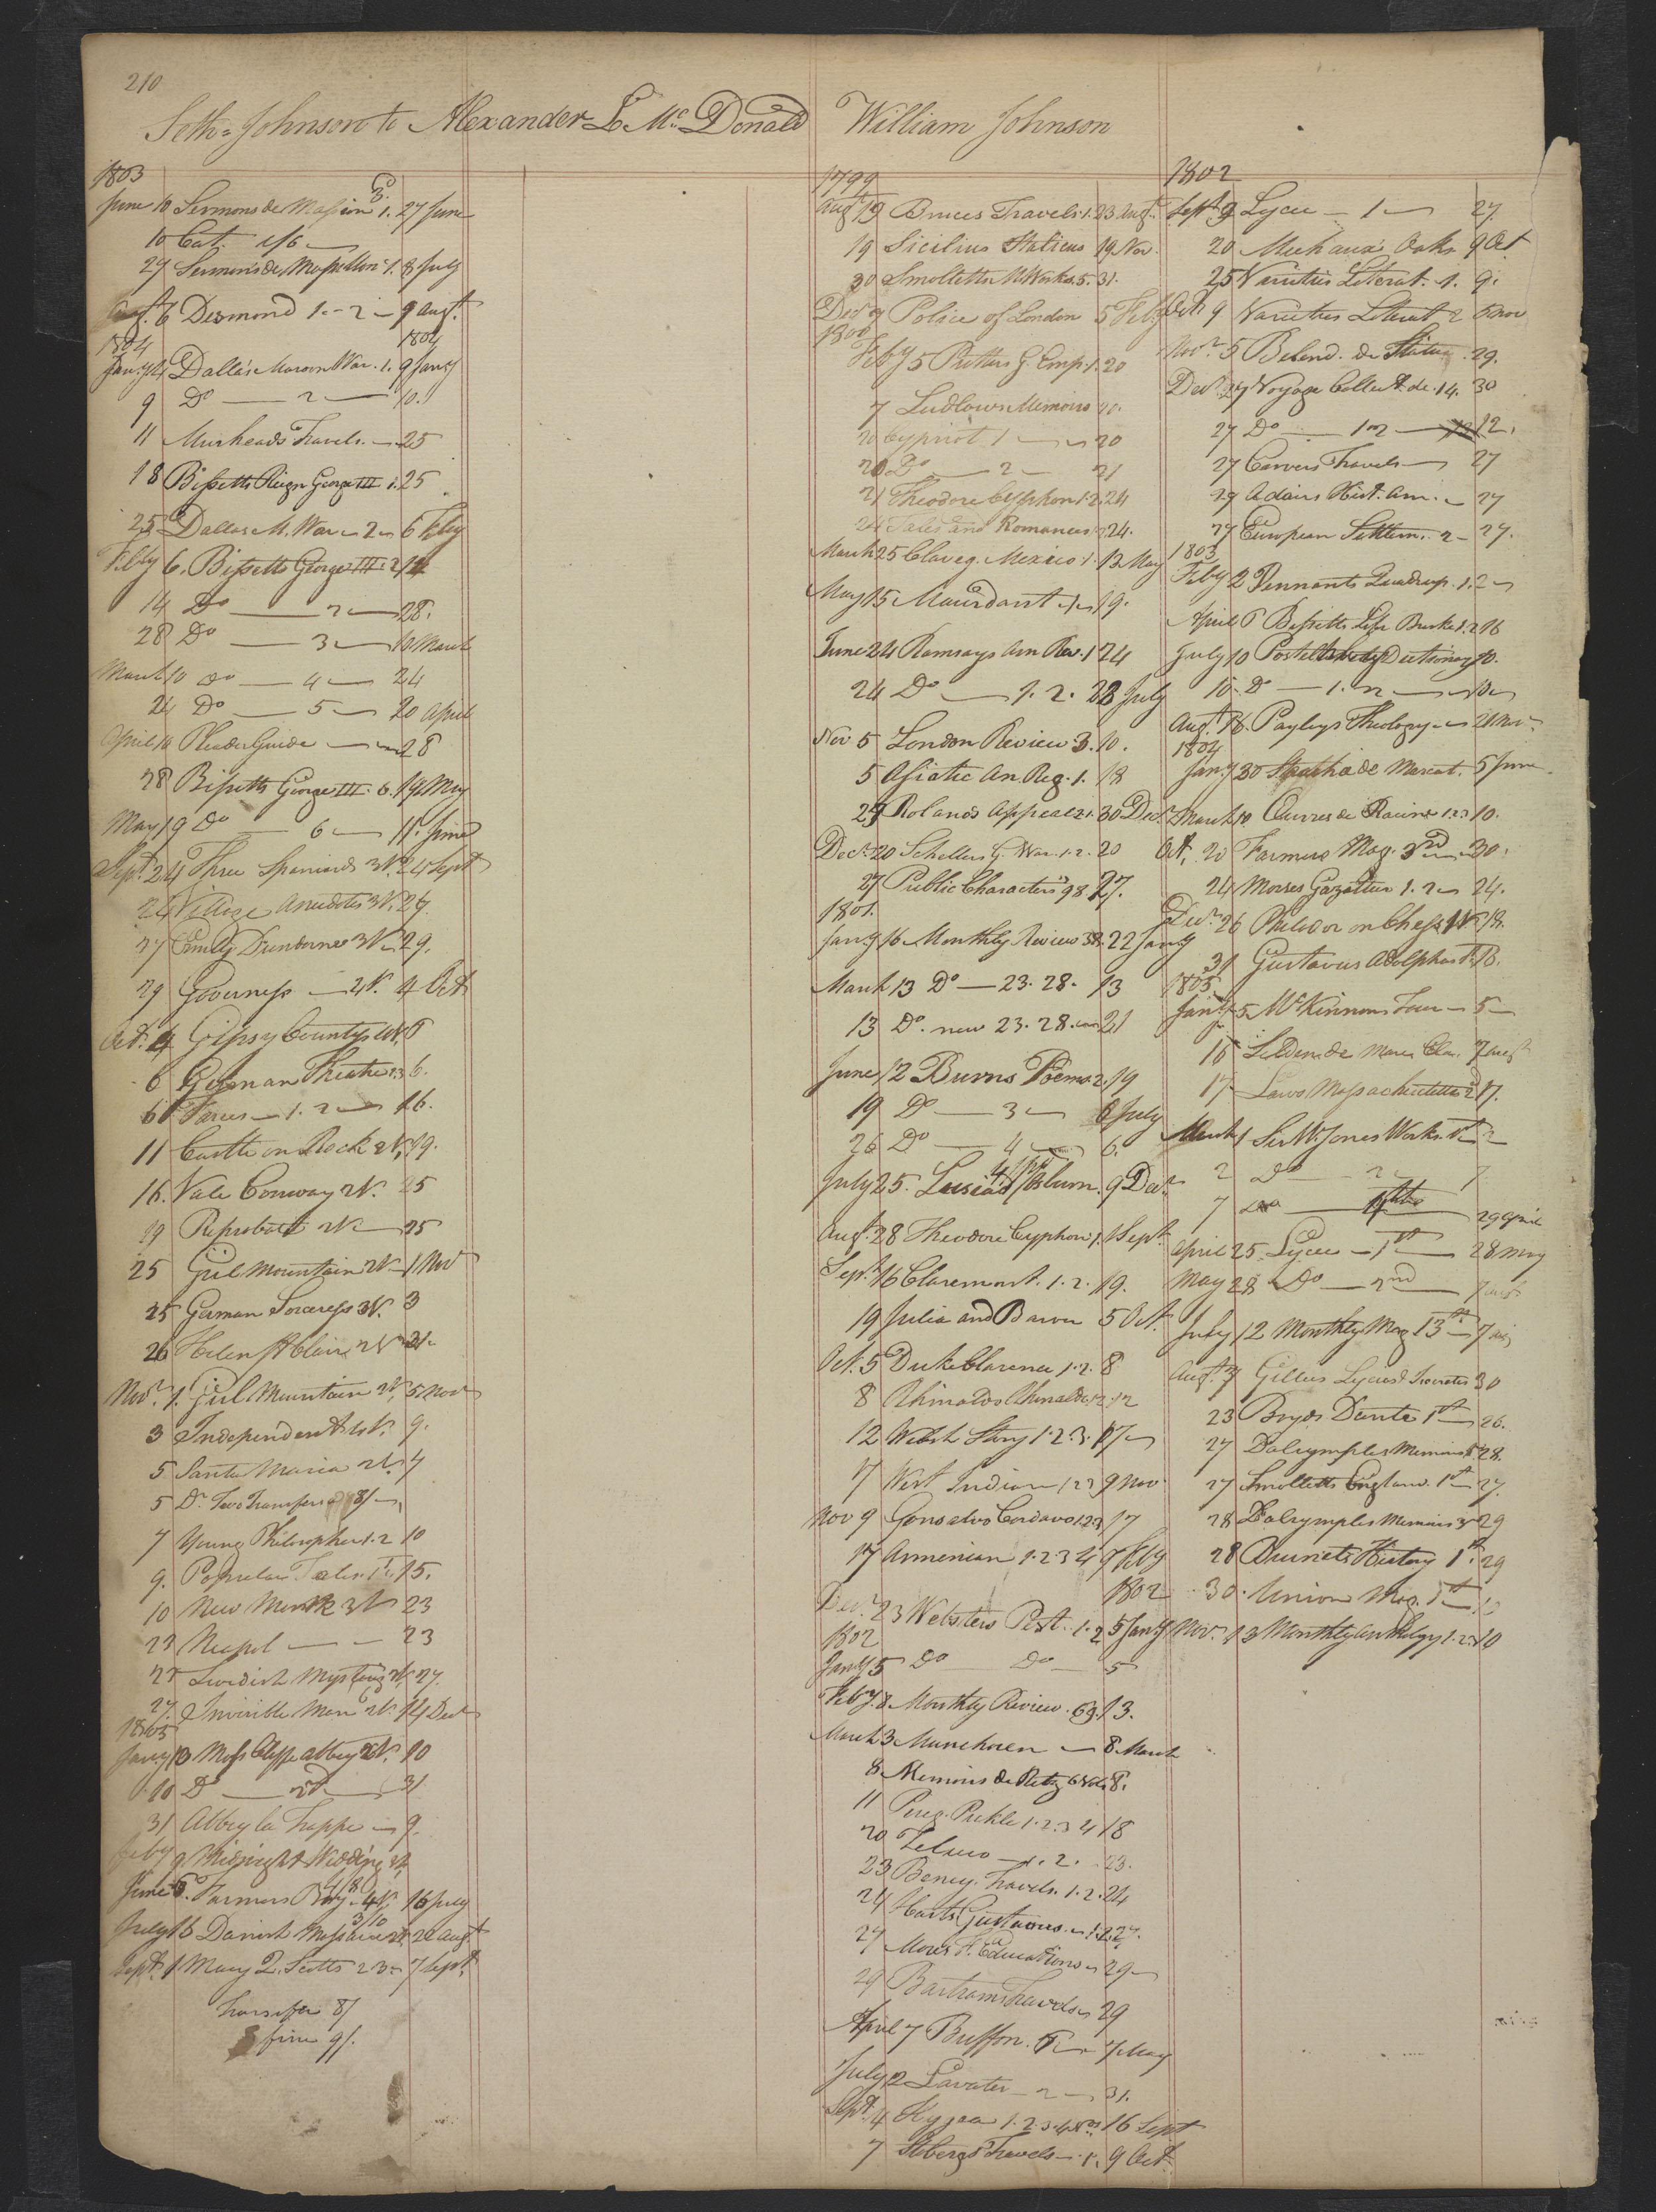 210
Seth Johnson to Alexander L McDonald
1803
June 10 Sermons de 1. 27 June
10 Cat. 1/6
27 Sermons de Massillon 1. 8 July
Augt. 6 Desmond 1 - 2 - 9 augt.
1804 1804
Jany Dallas Maroon War. 1. 9 Jany
9 Do 2 10.
11 Muirheads Travels 25
18 Bissetts Reign George III 1. 25
25 Dallas M. War 2 6 Feby
Feby 6. Bissetts George III
14 Do 2 28.
28 Do 3 10 March
March 10 Do 4 24
24 Do 5 20 April
April 10 Pleader Guide 28
28 Bissetts George III. 6. 19 May
May 19 Do 6 11. June
Sept. 24 Three Spaniards 3V. 24 Sept
24 Village Anecdotes 3V. 27.
27 Emily 3V. 29.
29 Governess 2V. 4 Oct
Oct. 4 Gipsy Countess 4V. 6
6 German Theatre 6.
6 Farces 1. 2 16.
11 Castle on Rock 2V. 19.
16. Vale Conway 2V. 25
19 Reprobate 2V. 25
25 Girl Mountain 2V. 1 Nov
25 German Sorceress 3V. 3
26 Helen St Clair 2V 31.
Novr. 1. Girl Mountain 2V. 5. Novr
3 Independent 2V. 9.
5 Santa Maria 2V. 7
5 Do. Two Transfers 8/
7 Young Philosopher 1. 2 10
9. Popular Tales 1. 15.
10 New Monk 3V 23
23 Neapol 23
Swedish Mysteries 2V. 27.
27. Invisible Man 2V. 14 Decr
1805
Jany 10 Moss Cliffe abbey 2V. 10
10 Do 31
31 Abbey la Trappe 9.
Feby 9 Midnight Wedding
June 6. Farmers Boy. 4V. 16 July
July 16 Danish Massacre 2V. 22 Augt
Sept. 1 Mary Q. Scotts 2 3 7 Sept.
transfer 8/
fine 9/.
William Johnson
1799
Augt 19 Bruces Travels. 1. 23 Augt.
19 Sicilius Italicus 19 Nov.
30 Smolletts Works. 5. 31.
Decr 9 Police of London 5 Feby
1800
Feby 5 Putters G. Emp. 1. 20
7 Ludlows Memoirs 20.
20 Cypriot 1 20
20 Do 2 21
21 Theodore Cyphon 1. 2. 24
24 Tales and Romances 24.
March 25 Claveg. Mexico 1. 13 May
May 15 Mourdant 19.
June 24 Ramsays Am Rev. 1 24
24 Do 1. 2. 28 July
Nov 5 London Review 3. 10.
5 Asiatic An Reg. 1. 18
29 Rolands Appeal 30 Decr
Decr. 20 Schellers G. War. 1. 2. 20
27 Public Characters 98 27.
1801.
Jany 16 Monthly Review 22 Jany
March 13 Do 23. 28. 13
13 Do. new 23. 28. 21
June 12 Burns Poems. 2. 19
19 Do 3 6 July
26 Do 4 6.
July 25. Lusiad 9 Decr
Augt. 28 Theodore Cyphon 1. 1 Sept.
Sept. 16 Claremont. 1. 2. 19.
19 Julia and Baron 5 Oct.
Oct. 5 Duke Clarence 1. 2. 8
8 Rhinaldo Rhinaldi 12
12 Welsh Story 1. 2. 3. 17
17 West Indian 1 2 9 Nov
Nov 9 Gonsalvo Cordova 1. 2. 3 17
17 Armenian 1. 2 3 4 9 Feby
1802
Decr. 23 Websters Pest. 1. 2 5 Jany
1802
Jany 5 Do Do 5
Feby. 8 Monthly Review. 69. 13.
March 3 Munchosen 8 March
8 Memoirs de Retz 6 Vols 8.
11 Pereg. Pickle 1. 2. 3 4 18
20 Zeluco 1. 2. 23.
23 Travels. 1. 2. 24
24 Harts Gustavus 1. 2. 27.
27 Mores F. Education 29
29 Bartrams Travels 29
April 7 Buffon. 7 May
July 12 Lavater 2 31.
Sept 4 Hygea 1. 2. 3. 16 Sept
7 Travels 1. 9 Oct.
1802
Sept. 9 Lyceé 1 27.
20 Michaux Oaks 9 Oct
25 Varieties Literat. 1. 9.
Oct 9 Varieties Literat. 2 5 Nov
Novr. 5 Belend. de Statu. 29.
Decr. 27 Voyage Collect. de. 14. 30
27 Do 1 2 12.
27 Carvers Travels 27
29 Adairs Hist. Am. 27
27 European Settlem. 2 27.
1803
Feby 2 Pennants Quadrup. 1. 2
April 6 Bissetts Life Burke 1. 2 16
July 10 Dictionary 10.
10. Do 1. 2 10
Augt. 16. Payleys Theology 21 Nov
1804
Jany 30 de Mercat. 5 June.
March 10 Œuvres de Racine 1. 2. 3 10.
Oct. 20 Farmers Mag. 3rd 30.
24 Morses Gazatteer 1. 2 24.
Decr. 26 Philidor on Chess 1V. 18.
31 Gustavus Adolphus 18.
1805.
Jany 5 McKinnons Tour 5
16 Selden de Mare Clau. 7 Augt
17 Laws Massachusetts 2d 17.
March 1 Sir W. Jones Works. 1st 2
2 Do 2 7
7 Do 29 April
April 25. Lyceé 1st 28 May
May 28 Do 2nd
July 12 Monthly Mag 13th 7
Augt. 7 Gillies Lycias & Isocrates 30
23 Boyds Dante 1st 26.
27 Dalrymples Memoirs 28.
27 Smolletts England. 1st 27.
28 Dalrymples Memoirs 3 29
28 Burnets History 1st. 29
30. Union Mag. 1st 10
Novr. 13 Monthly Anthology 1. 2. 10